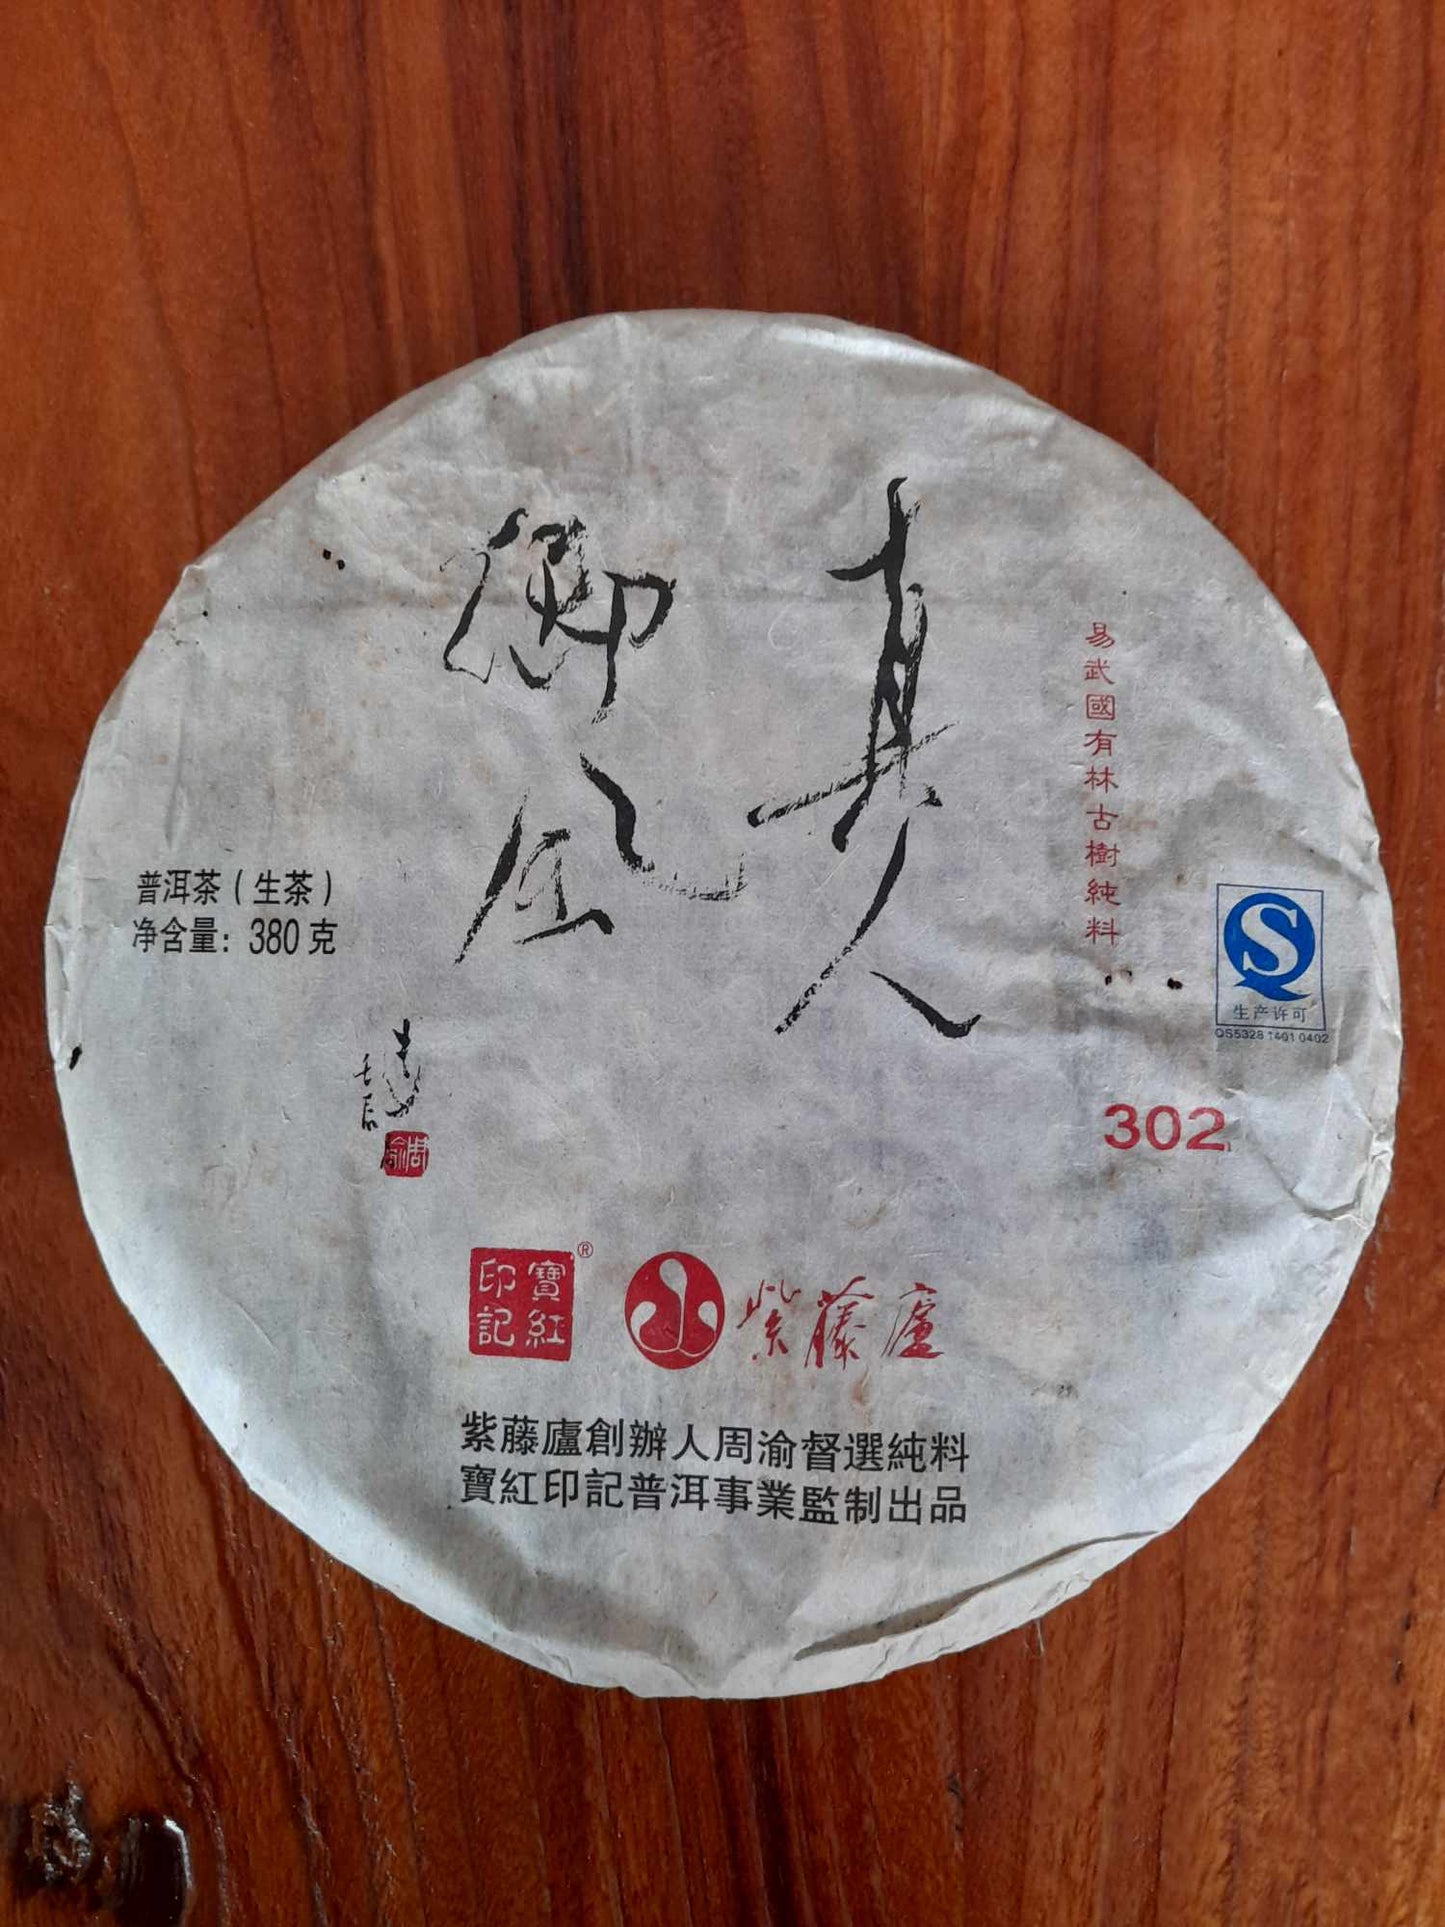 真人
御風
易武國有林古樹純料
普洱茶（生茶）
净含量：380克
生产许可
QS5328 1401 0402
壬辰
周渝
302
寶紅
印記
®
紫藤廬
紫藤廬創辦人周渝督選純料
寶紅印記普洱事業監制出品